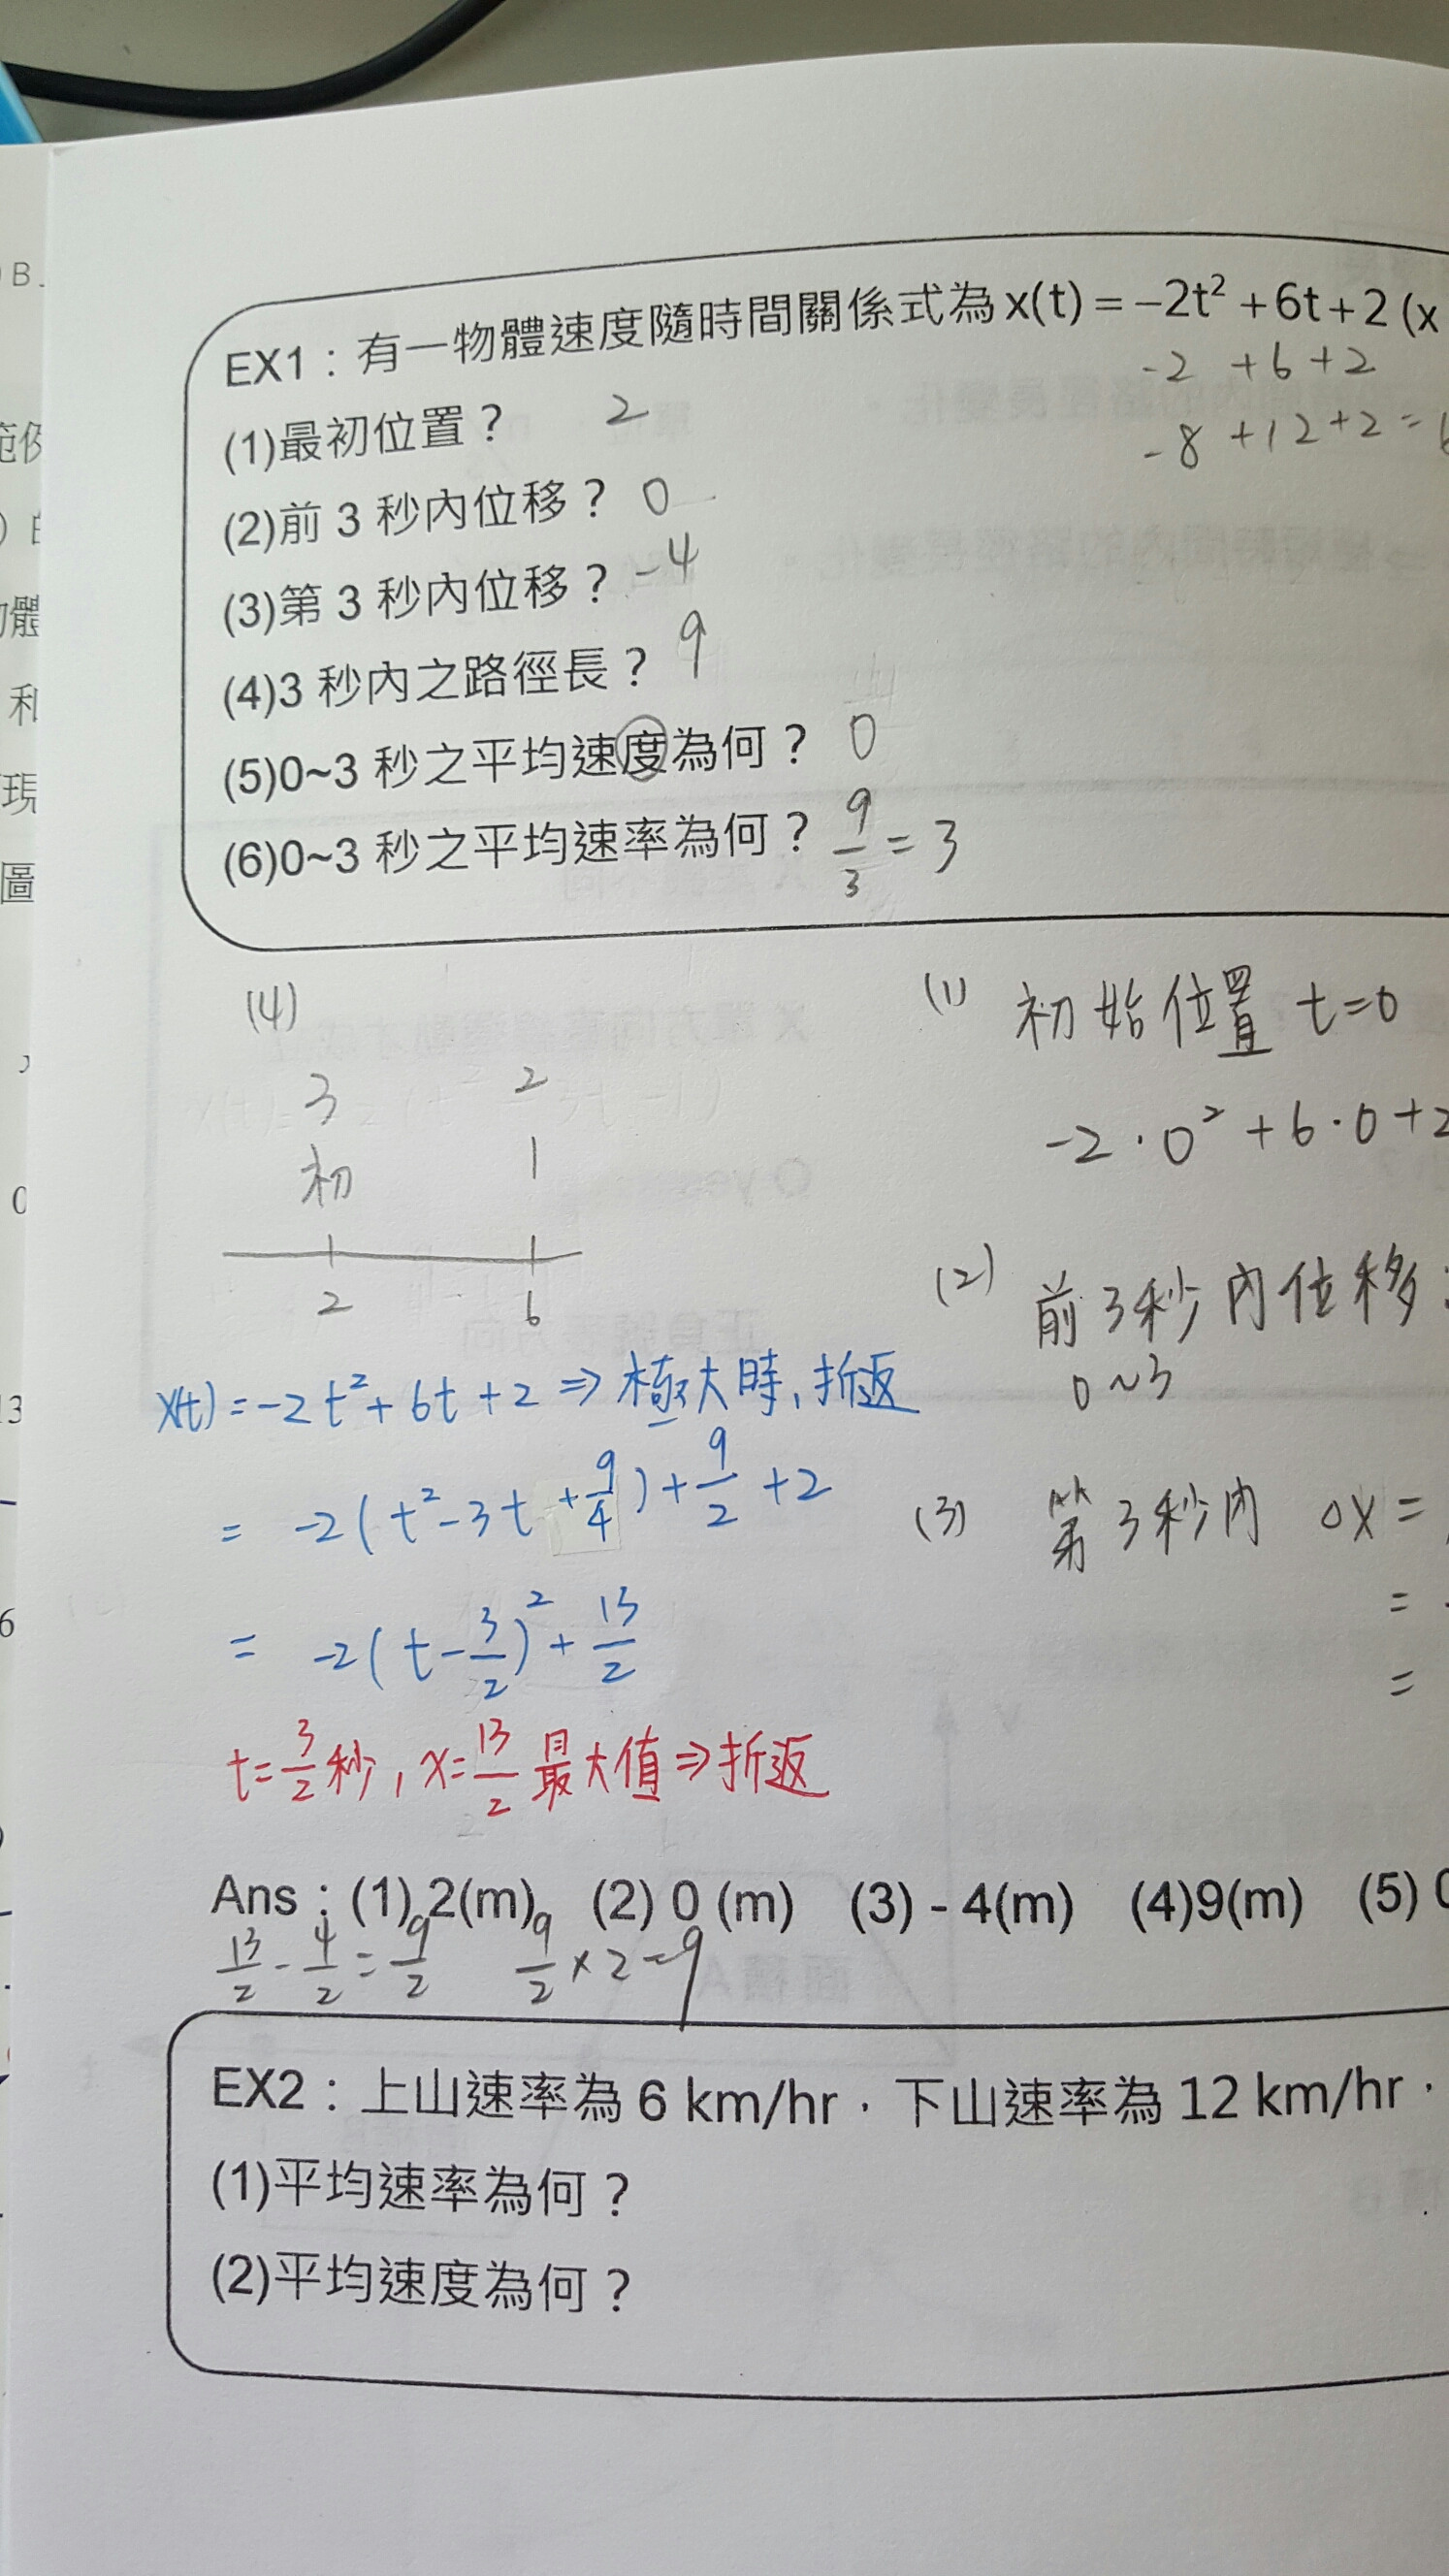 EX1：有一物體速度隨時間關係式為 x(t) = −2t² + 6t + 2 (x
-2 +6+2
-8 +12+2=6
(1)最初位置？ 2
(2)前 3 秒內位移？ 0
(3)第 3 秒內位移？ -4
(4)3 秒內之路徑長？ 9
(5)0~3 秒之平均速度為何？ 0
(6)0~3 秒之平均速率為何？ 9/3 = 3
(4)
3 2
初 1
2 6
x(t) = -2t² + 6t + 2 ⇒ 極大時,折返
= -2(t²-3t+9/4)+9/2+2
= -2(t-3/2)²+13/2
t=3/2秒, x=13/2 最大值⇒折返
(1) 初始位置 t=0
-2·0²+6·0+2
(2) 前3秒內位移
0~3
(3) 第3秒內 △x=
=
=
Ans：(1) 2(m) (2) 0 (m) (3) - 4(m) (4)9(m) (5) 0
13/2 - 4/2 = 9/2 9/2 × 2 = 9
EX2：上山速率為 6 km/hr，下山速率為 12 km/hr，
(1)平均速率為何？
(2)平均速度為何？
B
和
現
圖
0
13
6